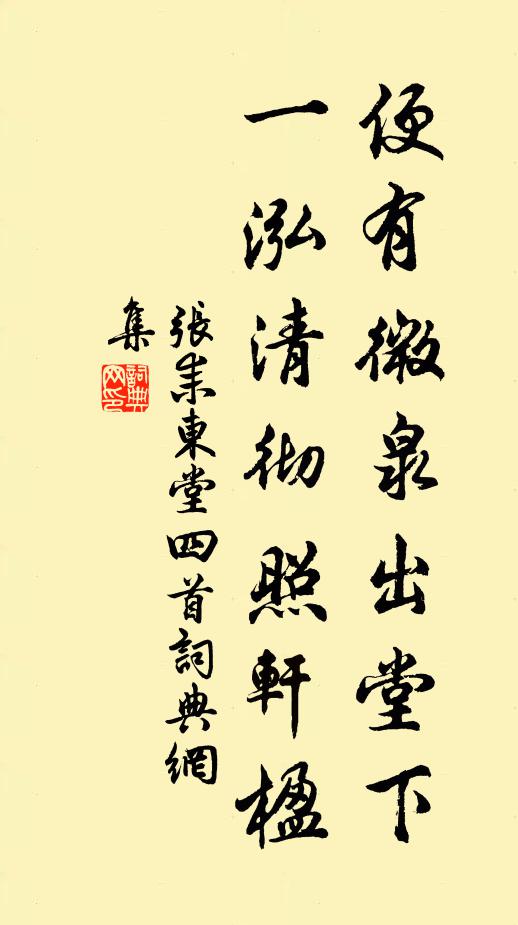 便有微泉出堂下
一泓清彻照軒楹
張耒東堂四首詞典網
集
詞典网印